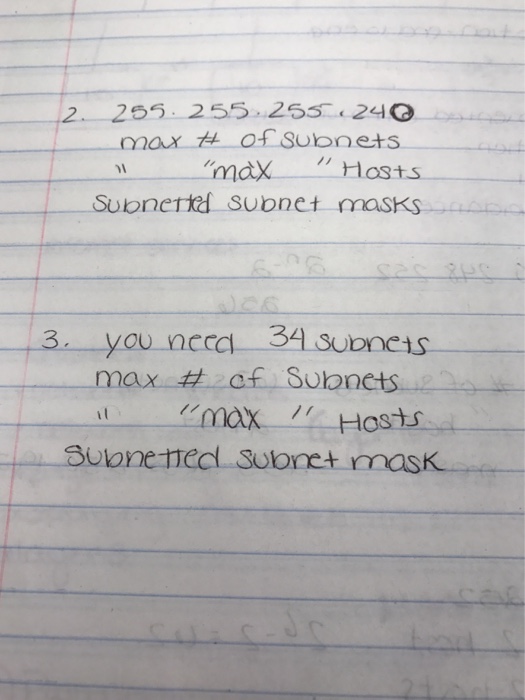 2. 255.255.255.240
max # of subnets
" "max " Hosts
Subnetted subnet masks
3. you need 34 subnets
max # of Subnets
" "max " Hosts
Subnetted subnet mask